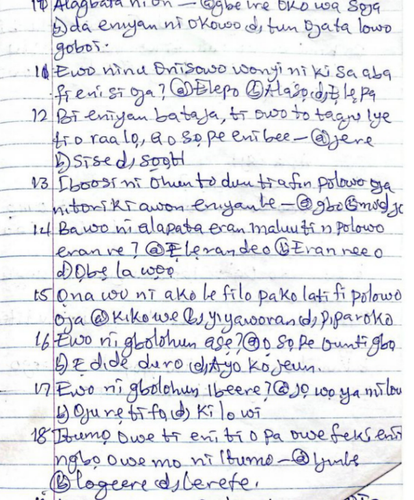 10 Alagbata ni on — (a) gbe ire oko wa soja
b) da eniyan ni okowo d, tun Ojata lowo
goboi.
11 Ewo ninu Onisowo wonyi ni ki sa aba
fi eni si oja? (a) Elepo (b) Alaso d, Elepa
12 Bi eniyan ba taja, ti owo to tagu iye
ti o ra a lo, a o so pe eni bee — (a) jere
b) Sise d, Sooti
13 Iboosi ni Ohun to dun ti a fin polowo oja
nitori ki awon eniyan le — (a) gbo (b) mu d, je
14 Bawo ni alapata eran maluu ti n polowo
eran re? (a) Eleran deo (b) Eran nee o
d) Obe la woo
15 Ona wo ni a ko le filo pako lati fi polowo
oja (a) Kikowe b, yiyaworan d, Pipa roko
16 Ewo ni gbolohun ase? (a) O so pe oun ti gbo
b, E dide duro d, Ayo ko jeun.
17 Ewo ni gbolohun ibeere? (a) Jo wo ya mi lou
b) Oju re ti fo, d) Ki lo wi
18 Itumo Owe ti eni ti o pa owe fe ki eni
ngbo owe mo ni Itumo — (a) Ijinle
(b) logeere d, Lerefe.